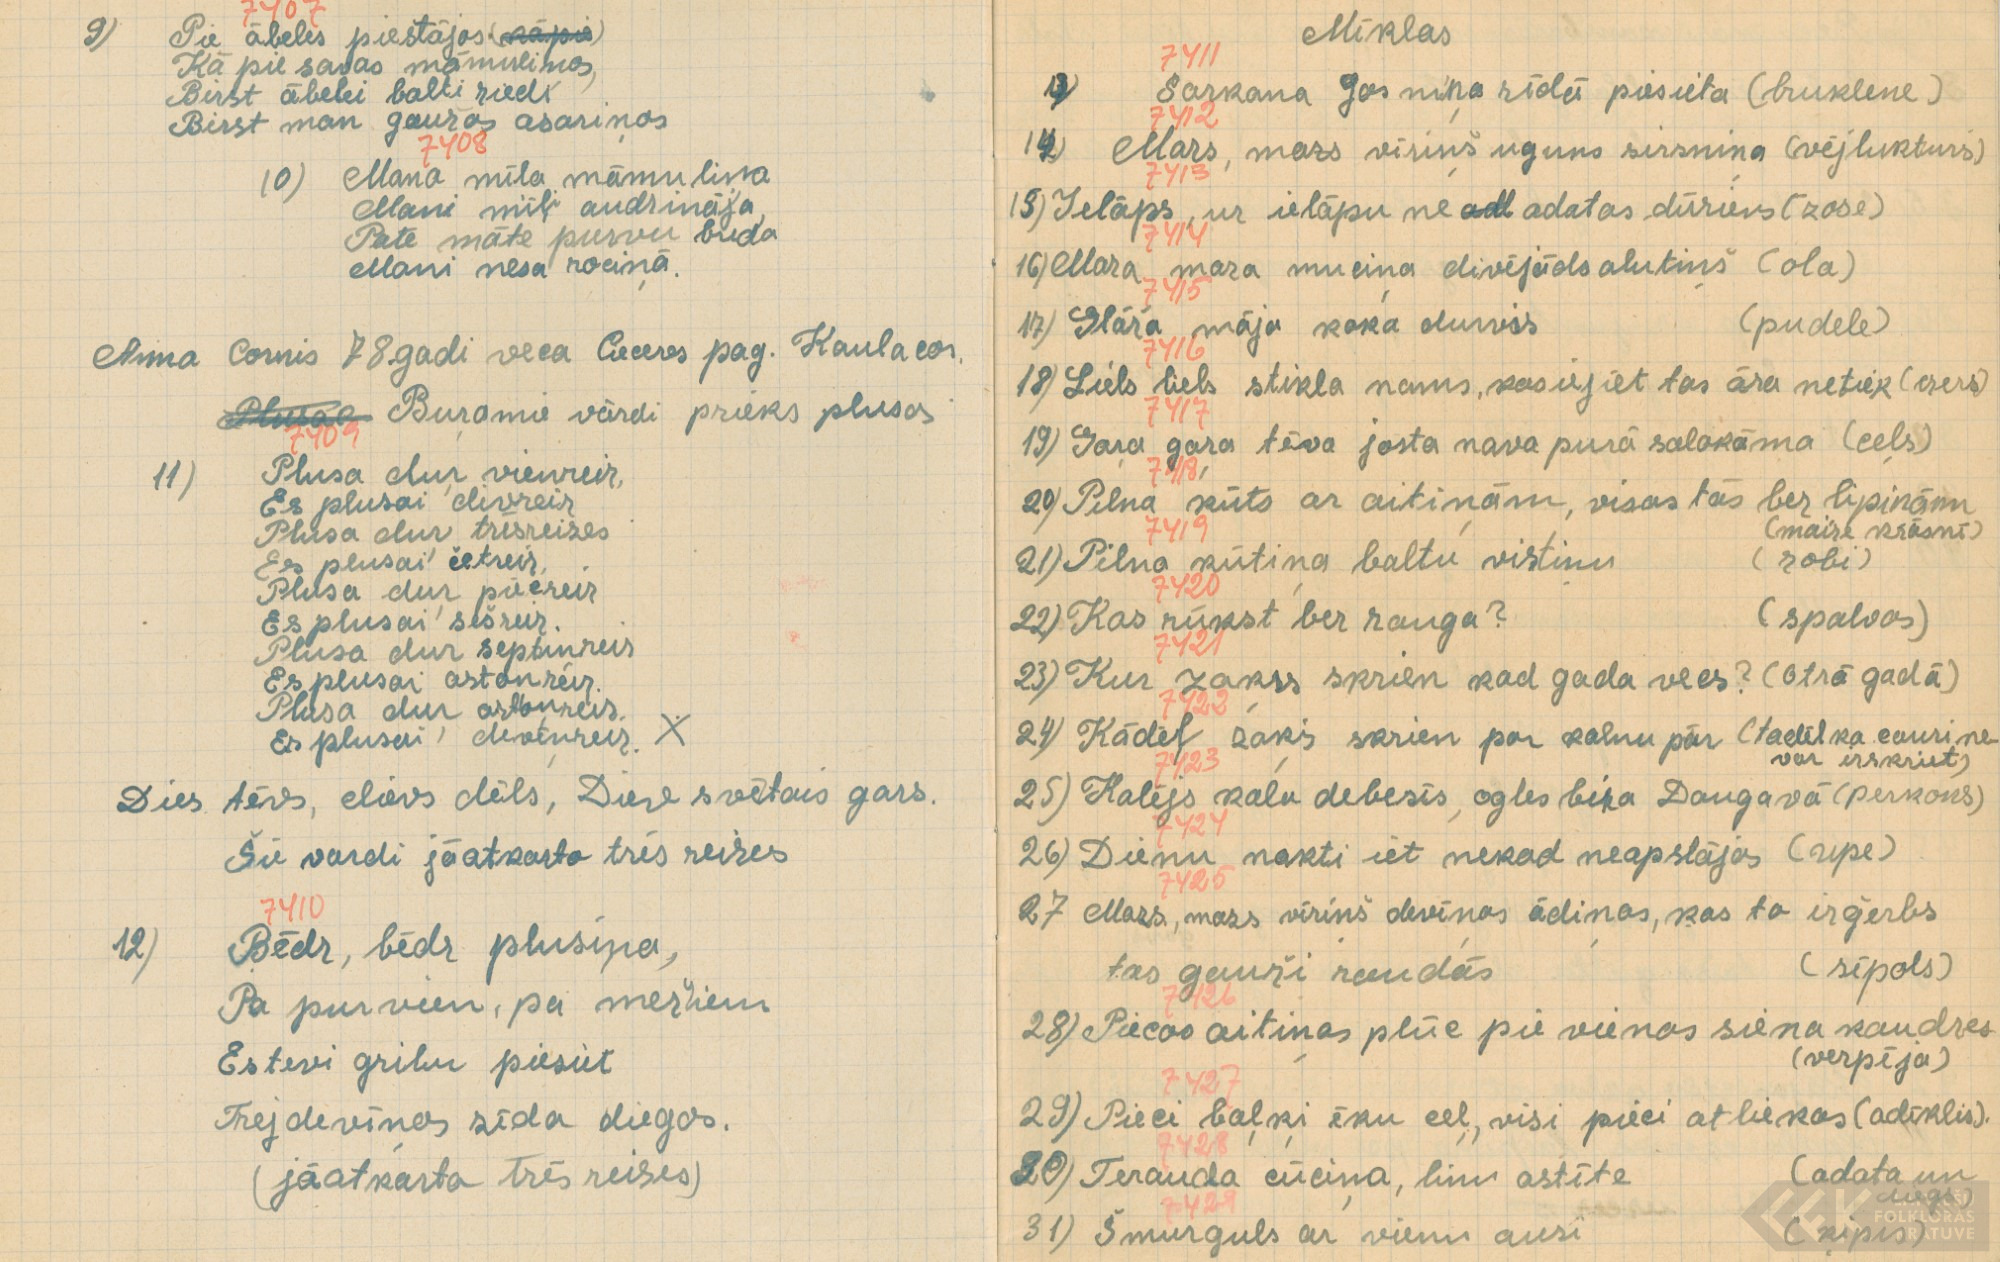 7407
9) Pie ābeles piestājos (kāpis)
Kā pie savas māmuliņas,
Birst ābelei balti ziedi
Birst man gaužas asariņas
7408
10) Mana mīļa māmuliņa
Mani mīļi audzināja,
Pate māte purvu brida
Mani nesa rociņā.
Anna Cornis 78 gadi veca Cieceres pag. Kaulacos.
Buramie vārdi prieks plusas
7409
11) Plusa dur vienreiz,
Es plusai divreiz
Plusa dur trīsreizes
Es plusai četreiz,
Plusa dur piecreiz
Es plusai sešreiz.
Plusa dur septiņreiz
Es plusai astoņreiz.
Plusa dur astoņreiz.
Es plusai deviņreiz. X
Dies tēvs, dievs dēls, Dievs svētais gars.
Šie vardi jāatkarto trīs reizes
7410
12) Bēdz, bēdz plusiņa,
Pa purvien, pa mežiem
Es tevi gribu piesiet
Trejdeviņas zīda diegas.
(jāatkarto trīs reizes)
Mīklas
7411
13) Sarkana gosniņa zīdā piesieta (bruklene)
7412
14) Mazs, mazs vīriņš uguns sirsniņa (vējlukturis)
7413
15) Ielāps, uz ielāpu ne adatas dūriens (zose)
7414
16) Maza, maza muciņa divējāds alutiņš (ola)
7415
17) Glāža māja koka durvis (pudele)
7416
18) Liels liels stikla nams, kas ieiet tas āra netiek (ezers)
7417
19) Gaŗa gaŗa tēva josta nava purā salokāma (ceļš)
7418
20) Pilna kūts ar aitiņām, visas tās bez lipiņām
(maize krāsnī)
7419
21) Pilna kūtiņa baltu vistiņu (zobi)
7420
22) Kas rūkst bez rauga? (spalvas)
7421
23) Kur zaķis skrien kad gada vecs? (Otrā gadā)
7422
24) Kādēļ zaķis skrien par kalnu pār (tadēl ka cauri ne
var izskriet)
7423
25) Kalējs kala debesīs, ogles bira Daugavā (perkons)
7424
26) Dienu nakti iet nekad neapstājas (upe)
7425
27 Mazs, mazs vīriņš deviņas ādiņas, kas to izģerbs
tas gauži raudās (sīpols)
7426
28) Piecas aitiņas plūc pie vienas siena kaudzes
(verpēja)
7427
29) Pieci baļķi ēku ceļ, visi pieci atliekas (adīklis).
7428
30) Terauda cūciņa, linu astīte (adata un
diegs)
7429
31) Šmurguls ar vienu ausi (ķipis)
FOLKLORAS
KRĀTUVE